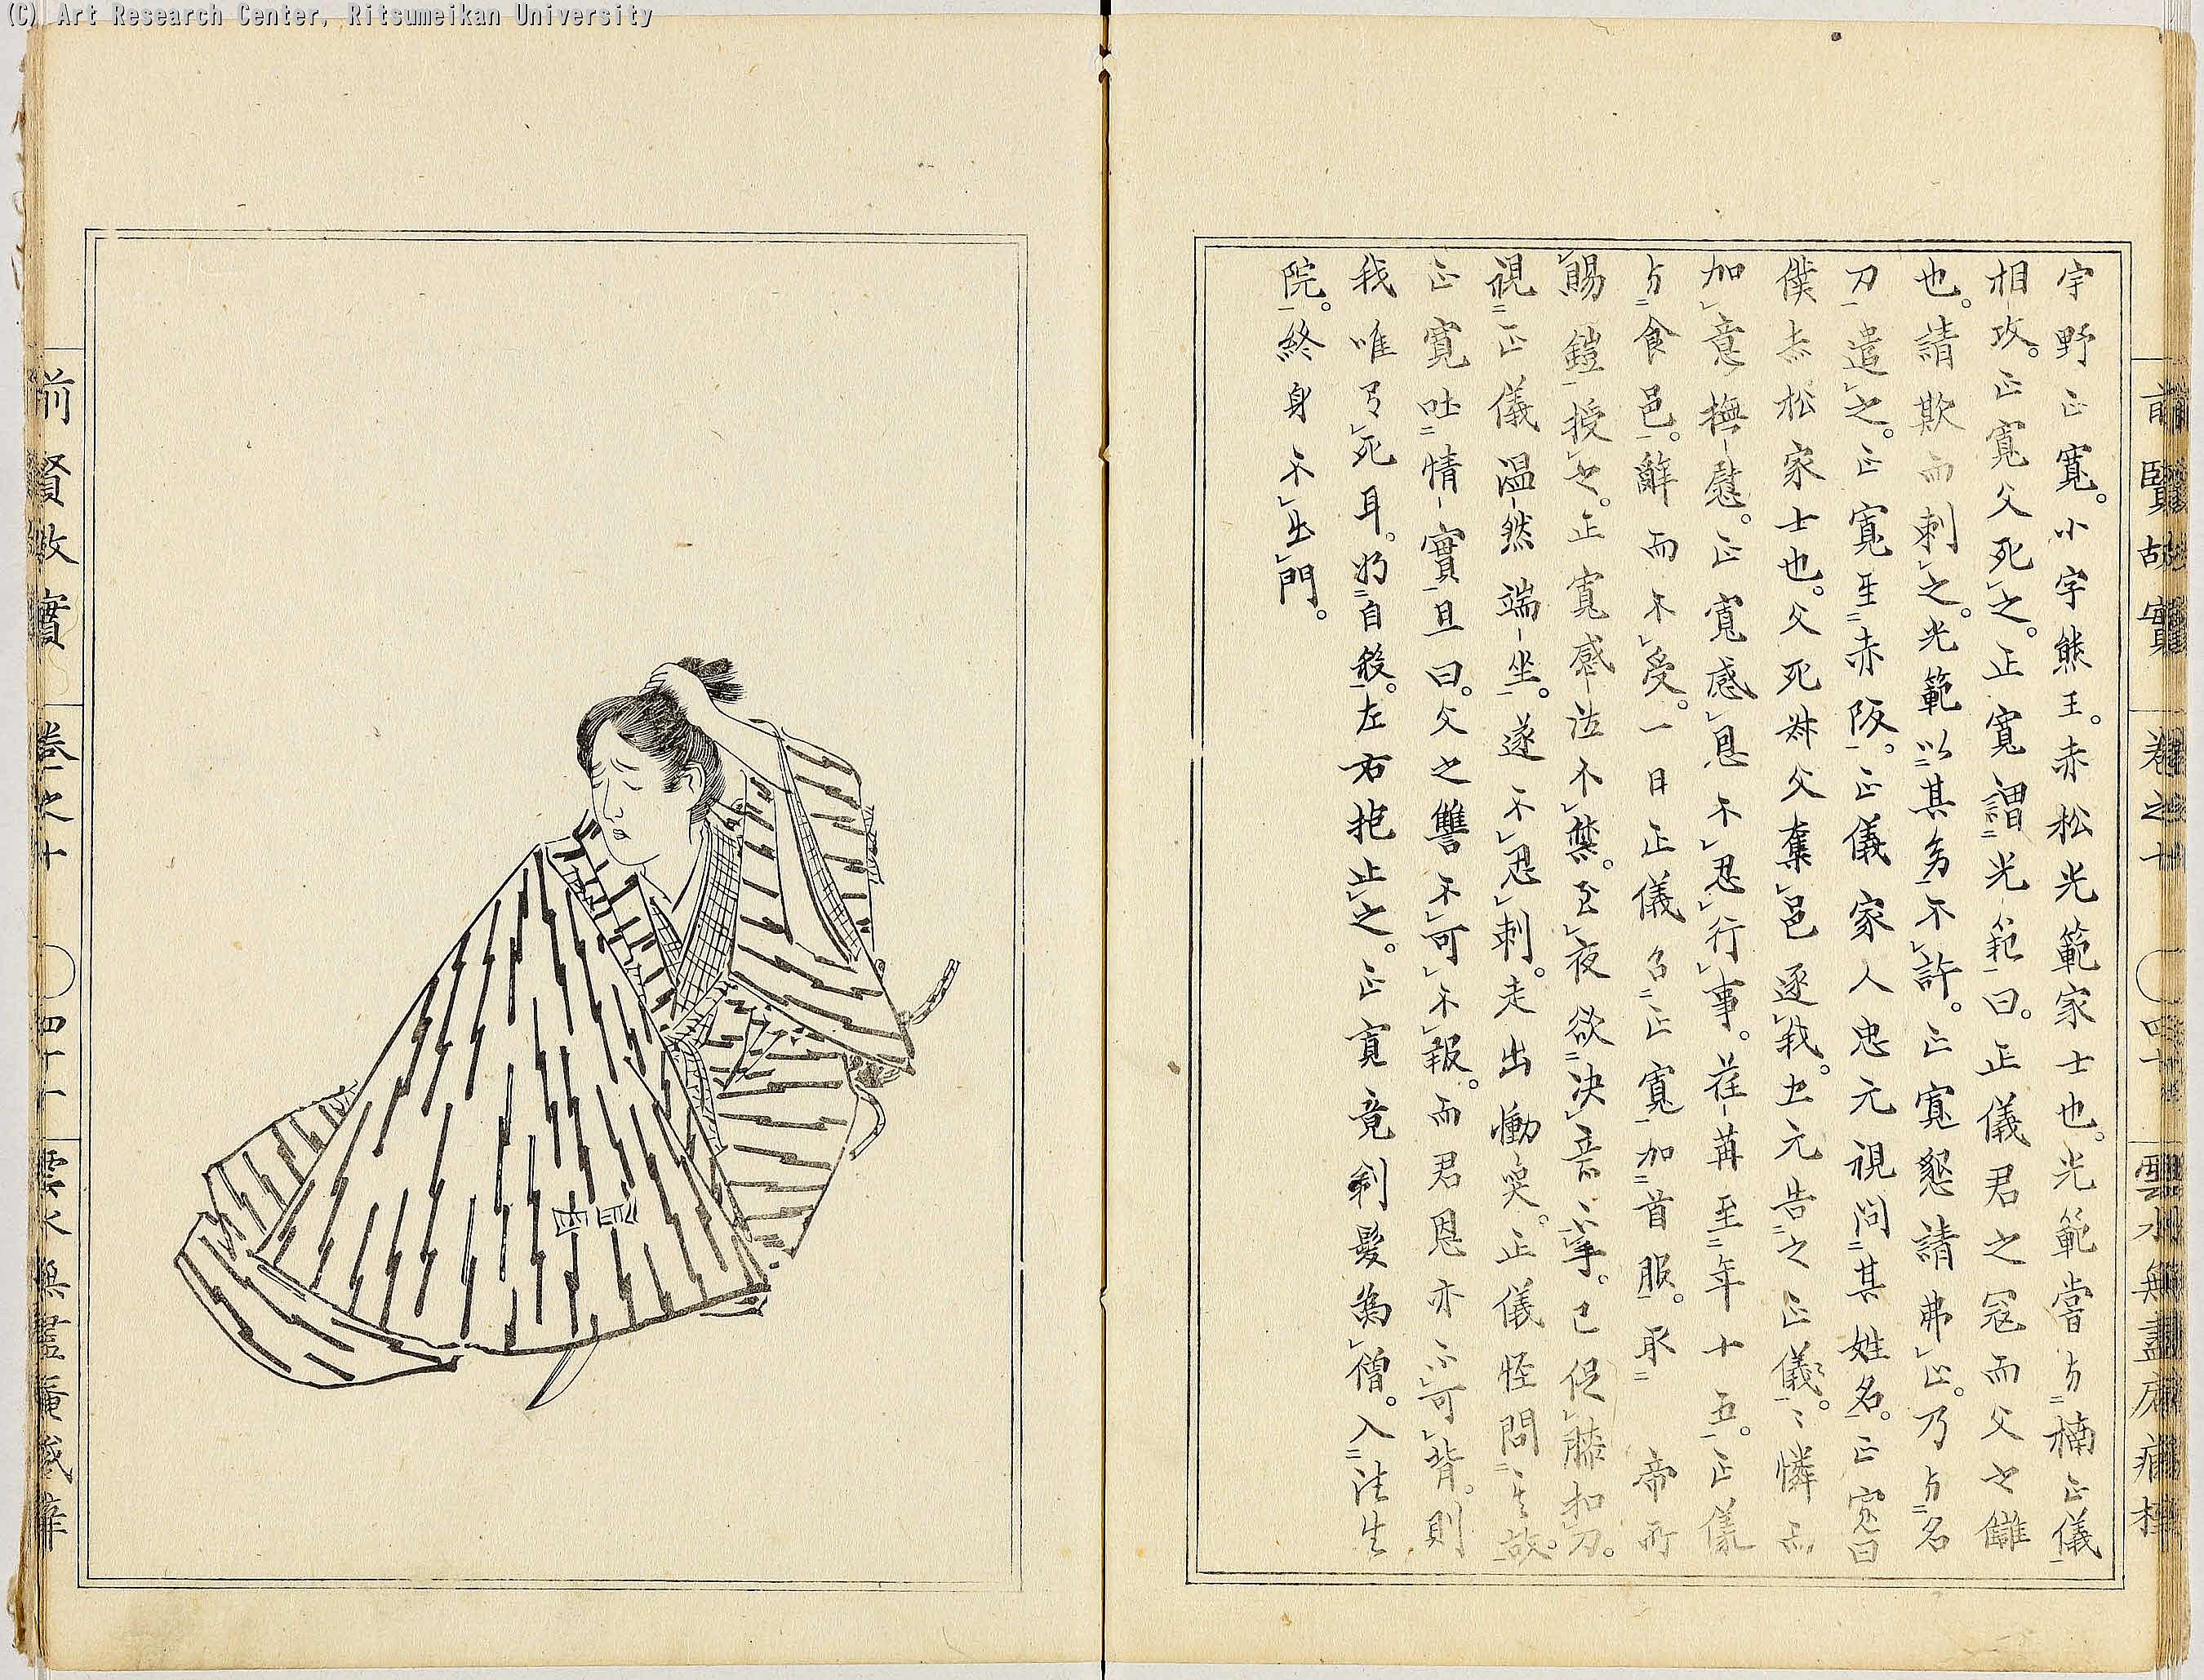 (C) Art Research Center, Ritsumeikan University
宇野正寛。小字熊王。赤松光範家士也。光範嘗与楠正儀
相攻。正寛父死之。正寛謂光範曰。正儀君之寇而父之讎
也。請欺而刺之。光範以其幼不許。正寛懇請弗止。乃与名
刀遣之。正寛至赤阪。正儀家人忠元視問其姓名。正寛曰
僕赤松家士也。父死叔父奪邑逐我。忠元告之正儀。〻憐而
加意撫慰。正寛感恩不忍行事。荏苒至年十五。正儀
与食邑。辭而不受。一日正儀召正寛加首服。取 帝所
賜鎧授之。正寛感泣不禁。至夜欲决意下手。已促膝扣刀。
視正儀温然端坐。遂不忍刺。走出慟哭。正儀怪問其故。
正寛吐情實且曰。父之讐不可不報。而君恩亦不可背。則
我唯有死耳。將自殺。左右抱止之。正寛竟剃髮為僧。入往生
院。終身不出門。
前賢故實 卷之十 四十 雲水無盡庵
前賢故實 卷之十 四十一 雲水無盡庵藏梓